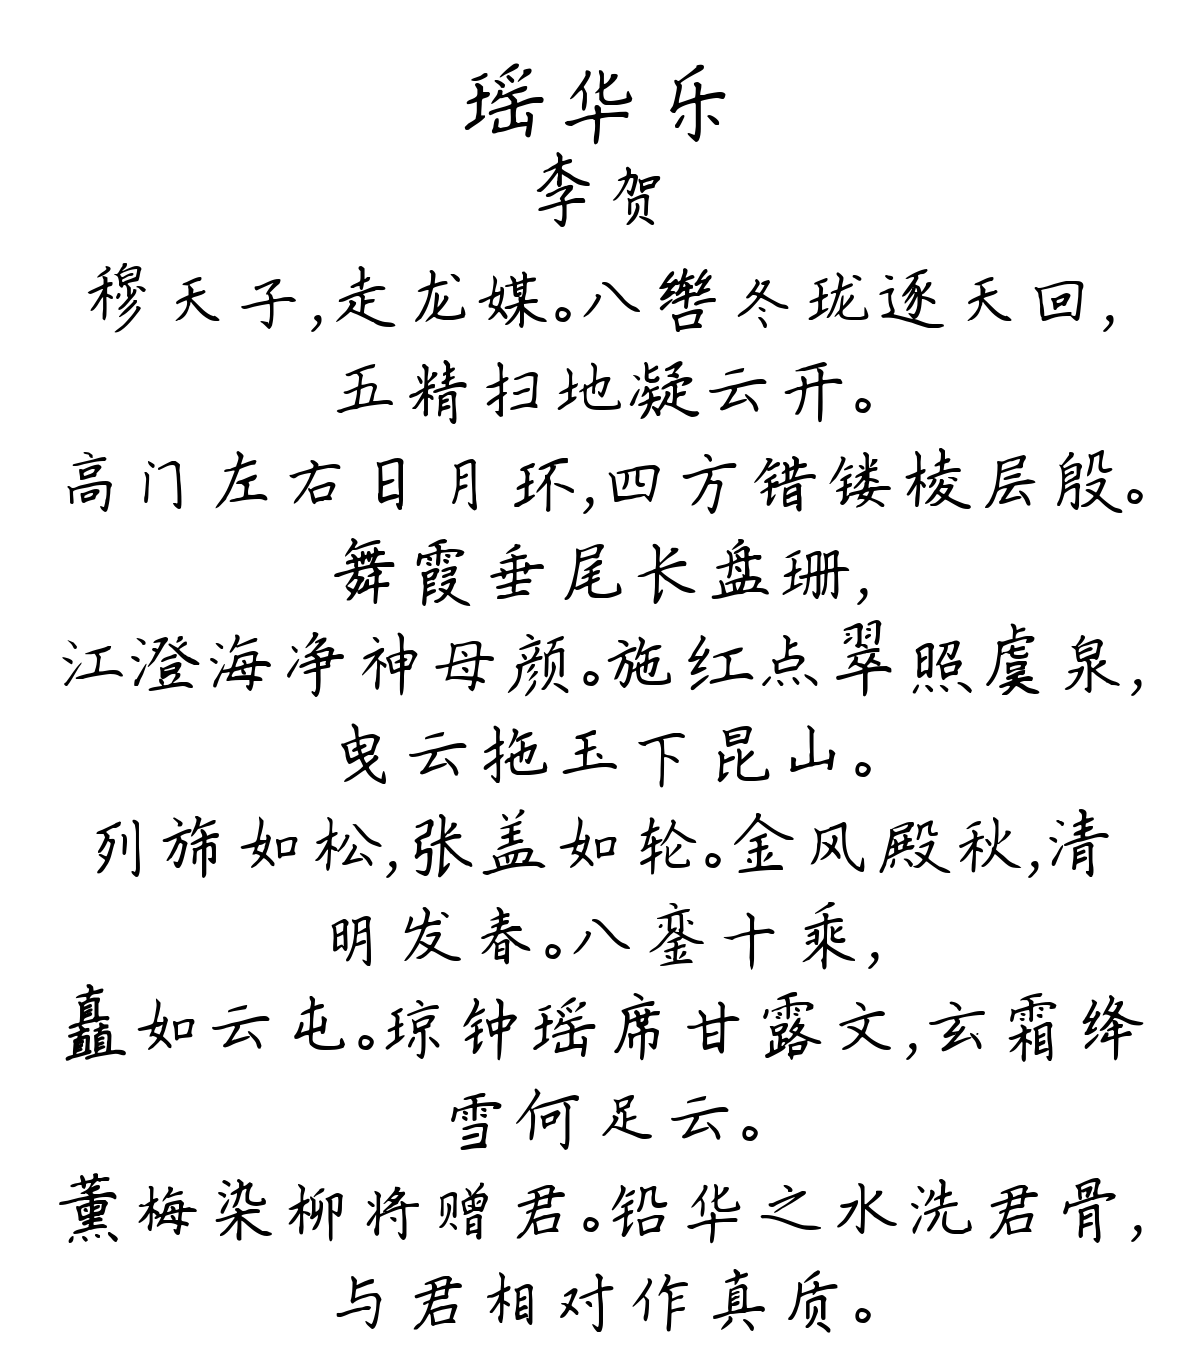 瑶华乐
李贺
穆天子,走龙媒。八辔冬珑逐天回,
五精扫地凝云开。
高门左右日月环,四方错镂棱层殷。
舞霞垂尾长盘珊,
江澄海净神母颜。施红点翠照虞泉,
曳云拖玉下昆山。
列旆如松,张盖如轮。金风殿秋,清
明发春。八銮十乘,
矗如云屯。琼钟瑶席甘露文,玄霜绛
雪何足云。
薰梅染柳将赠君。铅华之水洗君骨,
与君相对作真质。